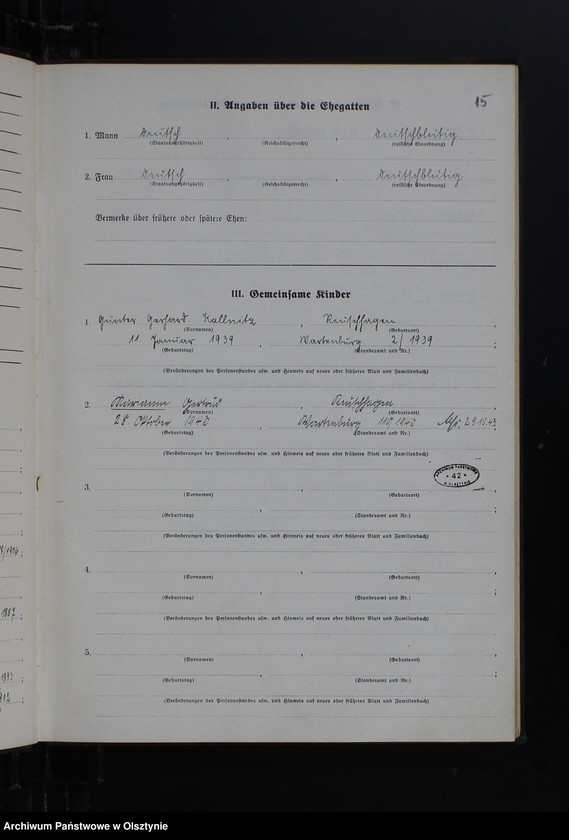 15
II. Angaben über die Ehegatten
1. Mann Deutsch , , Deutschblütig
(Staatsangehörigkeit) (Reichsbürgerrecht) (rassische Einordnung)
2. Frau Deutsch , , Deutschblütig
(Staatsangehörigkeit) (Reichsbürgerrecht) (rassische Einordnung)
Vermerke über frühere oder spätere Ehen:
III. Gemeinsame Kinder
1. Günter Gerhard Kallnitz , Reuschhagen
(Vornamen) (Geburtsort)
11. Januar 1939 , Wartenburg 2/1939 ;
(Geburtstag) (Standesamt und Nr.)
(Veränderungen des Personenstandes usw. und Hinweis auf neues oder früheres Blatt und Familienbuch)
2. Marianne Gertrud , Reuschhagen
(Vornamen) (Geburtsort)
28. Oktober 1943 , Wartenburg 119/1943
(Geburtstag) (Standesamt und Nr.)
(Veränderungen des Personenstandes usw. und Hinweis auf neues oder früheres Blatt und Familienbuch)
ARCHIWUM PAŃSTWOWE
* 42 *
w OLSZTYNIE
3. , ,
(Vornamen) (Geburtsort)
, ;
(Geburtstag) (Standesamt und Nr.)
(Veränderungen des Personenstandes usw. und Hinweis auf neues oder früheres Blatt und Familienbuch)
4. , ,
(Vornamen) (Geburtsort)
, ;
(Geburtstag) (Standesamt und Nr.)
(Veränderungen des Personenstandes usw. und Hinweis auf neues oder früheres Blatt und Familienbuch)
5. , ,
(Vornamen) (Geburtsort)
, ;
(Geburtstag) (Standesamt und Nr.)
(Veränderungen des Personenstandes usw. und Hinweis auf neues oder früheres Blatt und Familienbuch)
1887
Archiwum Państwowe w Olsztynie